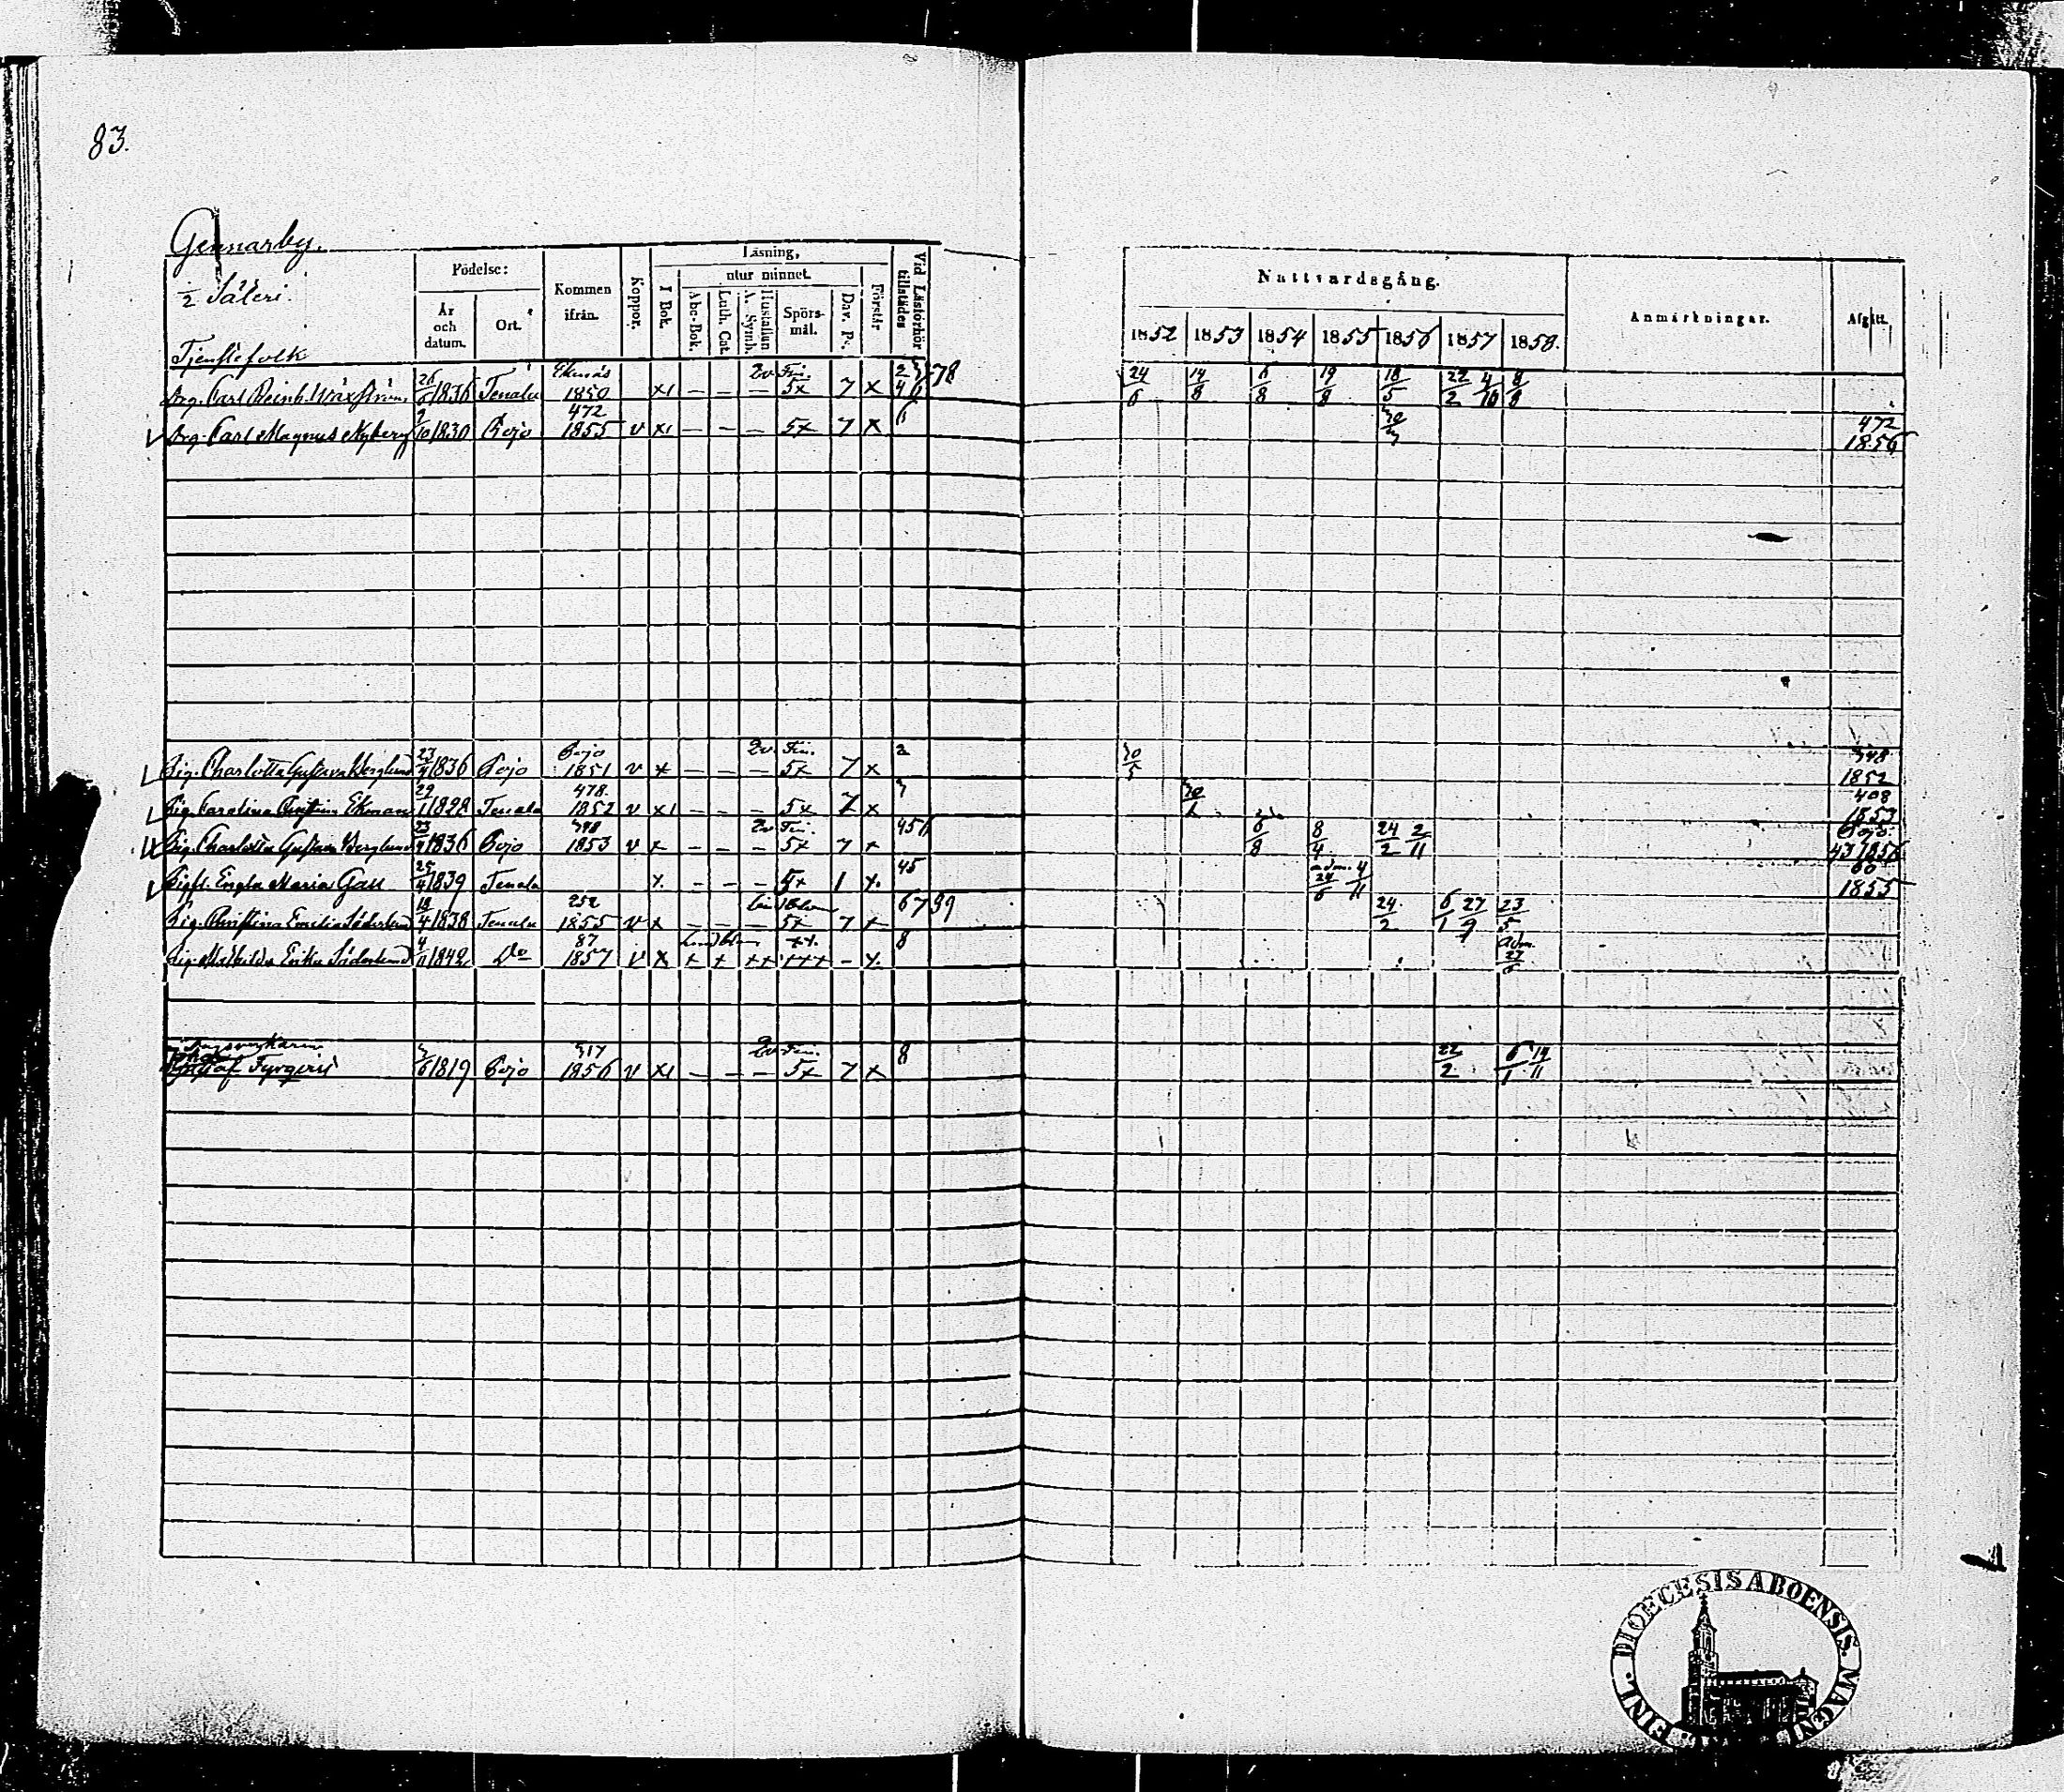 83.
Gennarby.
1/2 Säteri.
Tjenstefolk
Födelse:
År och datum.
Ort.
Kommen ifrån.
Koppor.
Läsning,
I Bok.
utur minnet.
Abc-Bok.
Luth. Cat.
Hustaflan A. Symb.
Spörsmål.
Dav. Ps.
Förstår
Vid Läsförhör tillstädes
Nattvardsgång.
1852 1853 1854 1855 1856 1857 1858.
Anmärkningar.
Afgått.
Drg. Carl Reinh. Wäxström 1836 Tenala Ekenäs 1850 x1 – – – 5x 7 x 24/6 14/8 6/8 19/8 18/5 22/2 4/10 8/8
Drg. Carl Magnus Nyberg 9/10 1830 Pojo 472 1855 v x1 – – – 5x 7 x 6 472 1856
Pig. Charlotta Gustava Berglund 23/9 1836 Pojo Pojo 1851 v x – – – 5x 7 x 2 30/5 348 1852
Pig. Carolina Christina Ekman 29/1 1828 Tenala 478. 1852 v x1 – – – 5x 7 x 3 408 1853
Pig. Charlotta Gustava Berglund 23/9 1836 Pojo 398 1853 v x – – – 5x 7 x 456 6/8 8/4 24/2 2/11 Pojo 43/1856
Pigfl. Engla Maria Gau 25/4 1839 Tenala x. – – – 5x 1 x. 45 adm. 24/6 4/11 60 1855
Pig. Christina Emilia Söderlund 18/4 1838 Tenala 252 1855 v x – – – 5x 7 x 67 39 24/2 6/1 27/9 23/5
Pig. Mathilda Erika Söderlund 4/11 1842 Do 87 1857 v x + + ++ +++ – x. 8 adm. 27/6
Gustaf Fyrqvist 3/6 1819 Pojo 317 1856 v x1 – – – 5x 7 x 8 22/2 6/1 14/11
DIOECESIS ABOENSIS. MAGNI FINL.